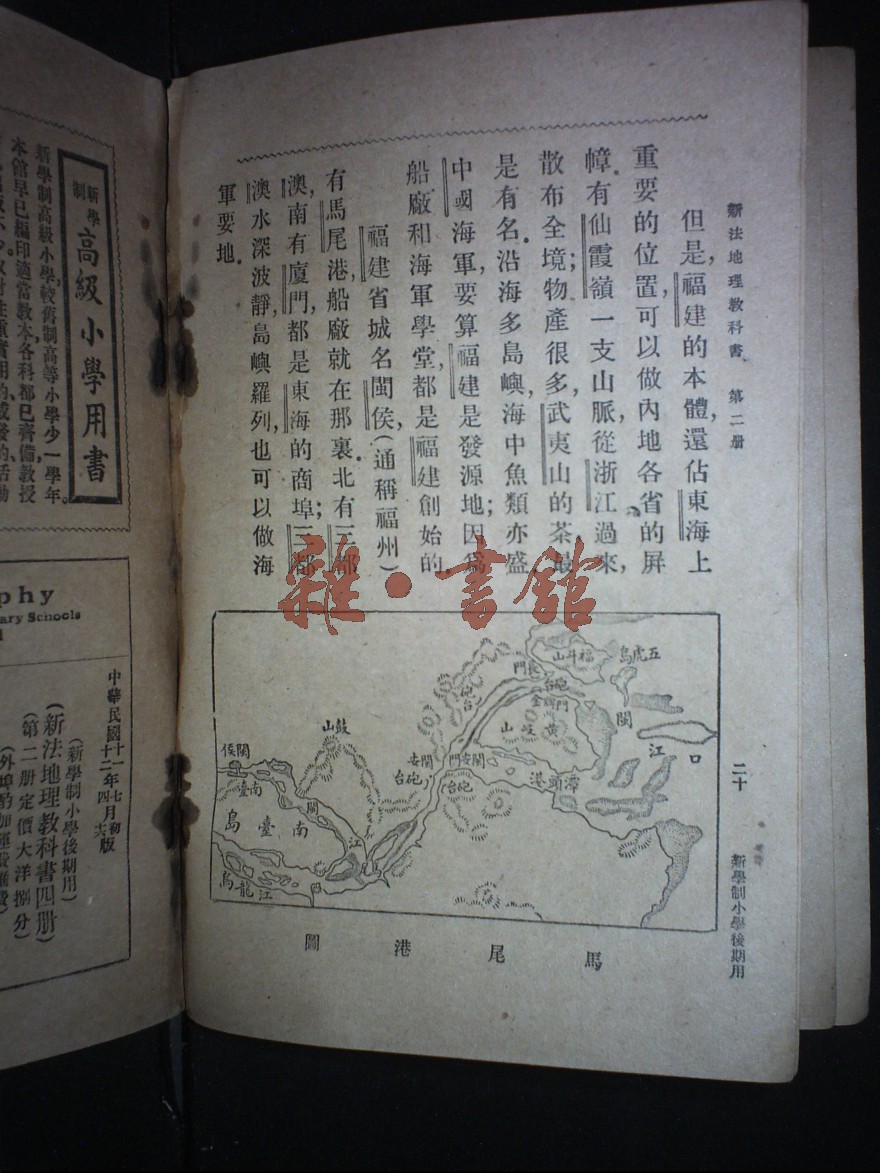 新法地理教科書 第二册
二十
新學制小學後期用
但是,福建的本體,還佔東海上
重要的位置,可以做內地各省的屏
幛.有仙霞嶺一支山脈,從浙江過來,
散布全境;物產很多,武夷山的茶,最
是有名.沿海多島嶼,海中魚類亦盛.
中國海軍,要算福建是發源地;因爲
船廠和海軍學堂,都是福建創始的.
福建省城名閩侯,(通稱福州)
有馬尾港,船廠就在那裏.北有三都
澳,南有廈門,都是東海的商埠;三都
澳水深波靜,島嶼羅列,也可以做海
軍要地.
五虎島
福斗山
長門
砲台
金牌門
黃岐山
閩江口
砲台
閩安門
閩安
砲台
砲台
潭頭港
鼓山
閩侯
南臺
閩江
南臺島
馬尾
烏龍江
馬尾港圖
雜·書館
新學制
高級小學用書
新學制高級小學,較舊制高等小學少一學年.
本館早已編印適當教本,各科都已齊備,教授
phy
ary Schools
中華民國十一年七月初版
十二年四月
(新學制小學後期用)
(新法地理教科書四册)
(第二册定價大洋捌分)
(外埠酌加運費匯費)